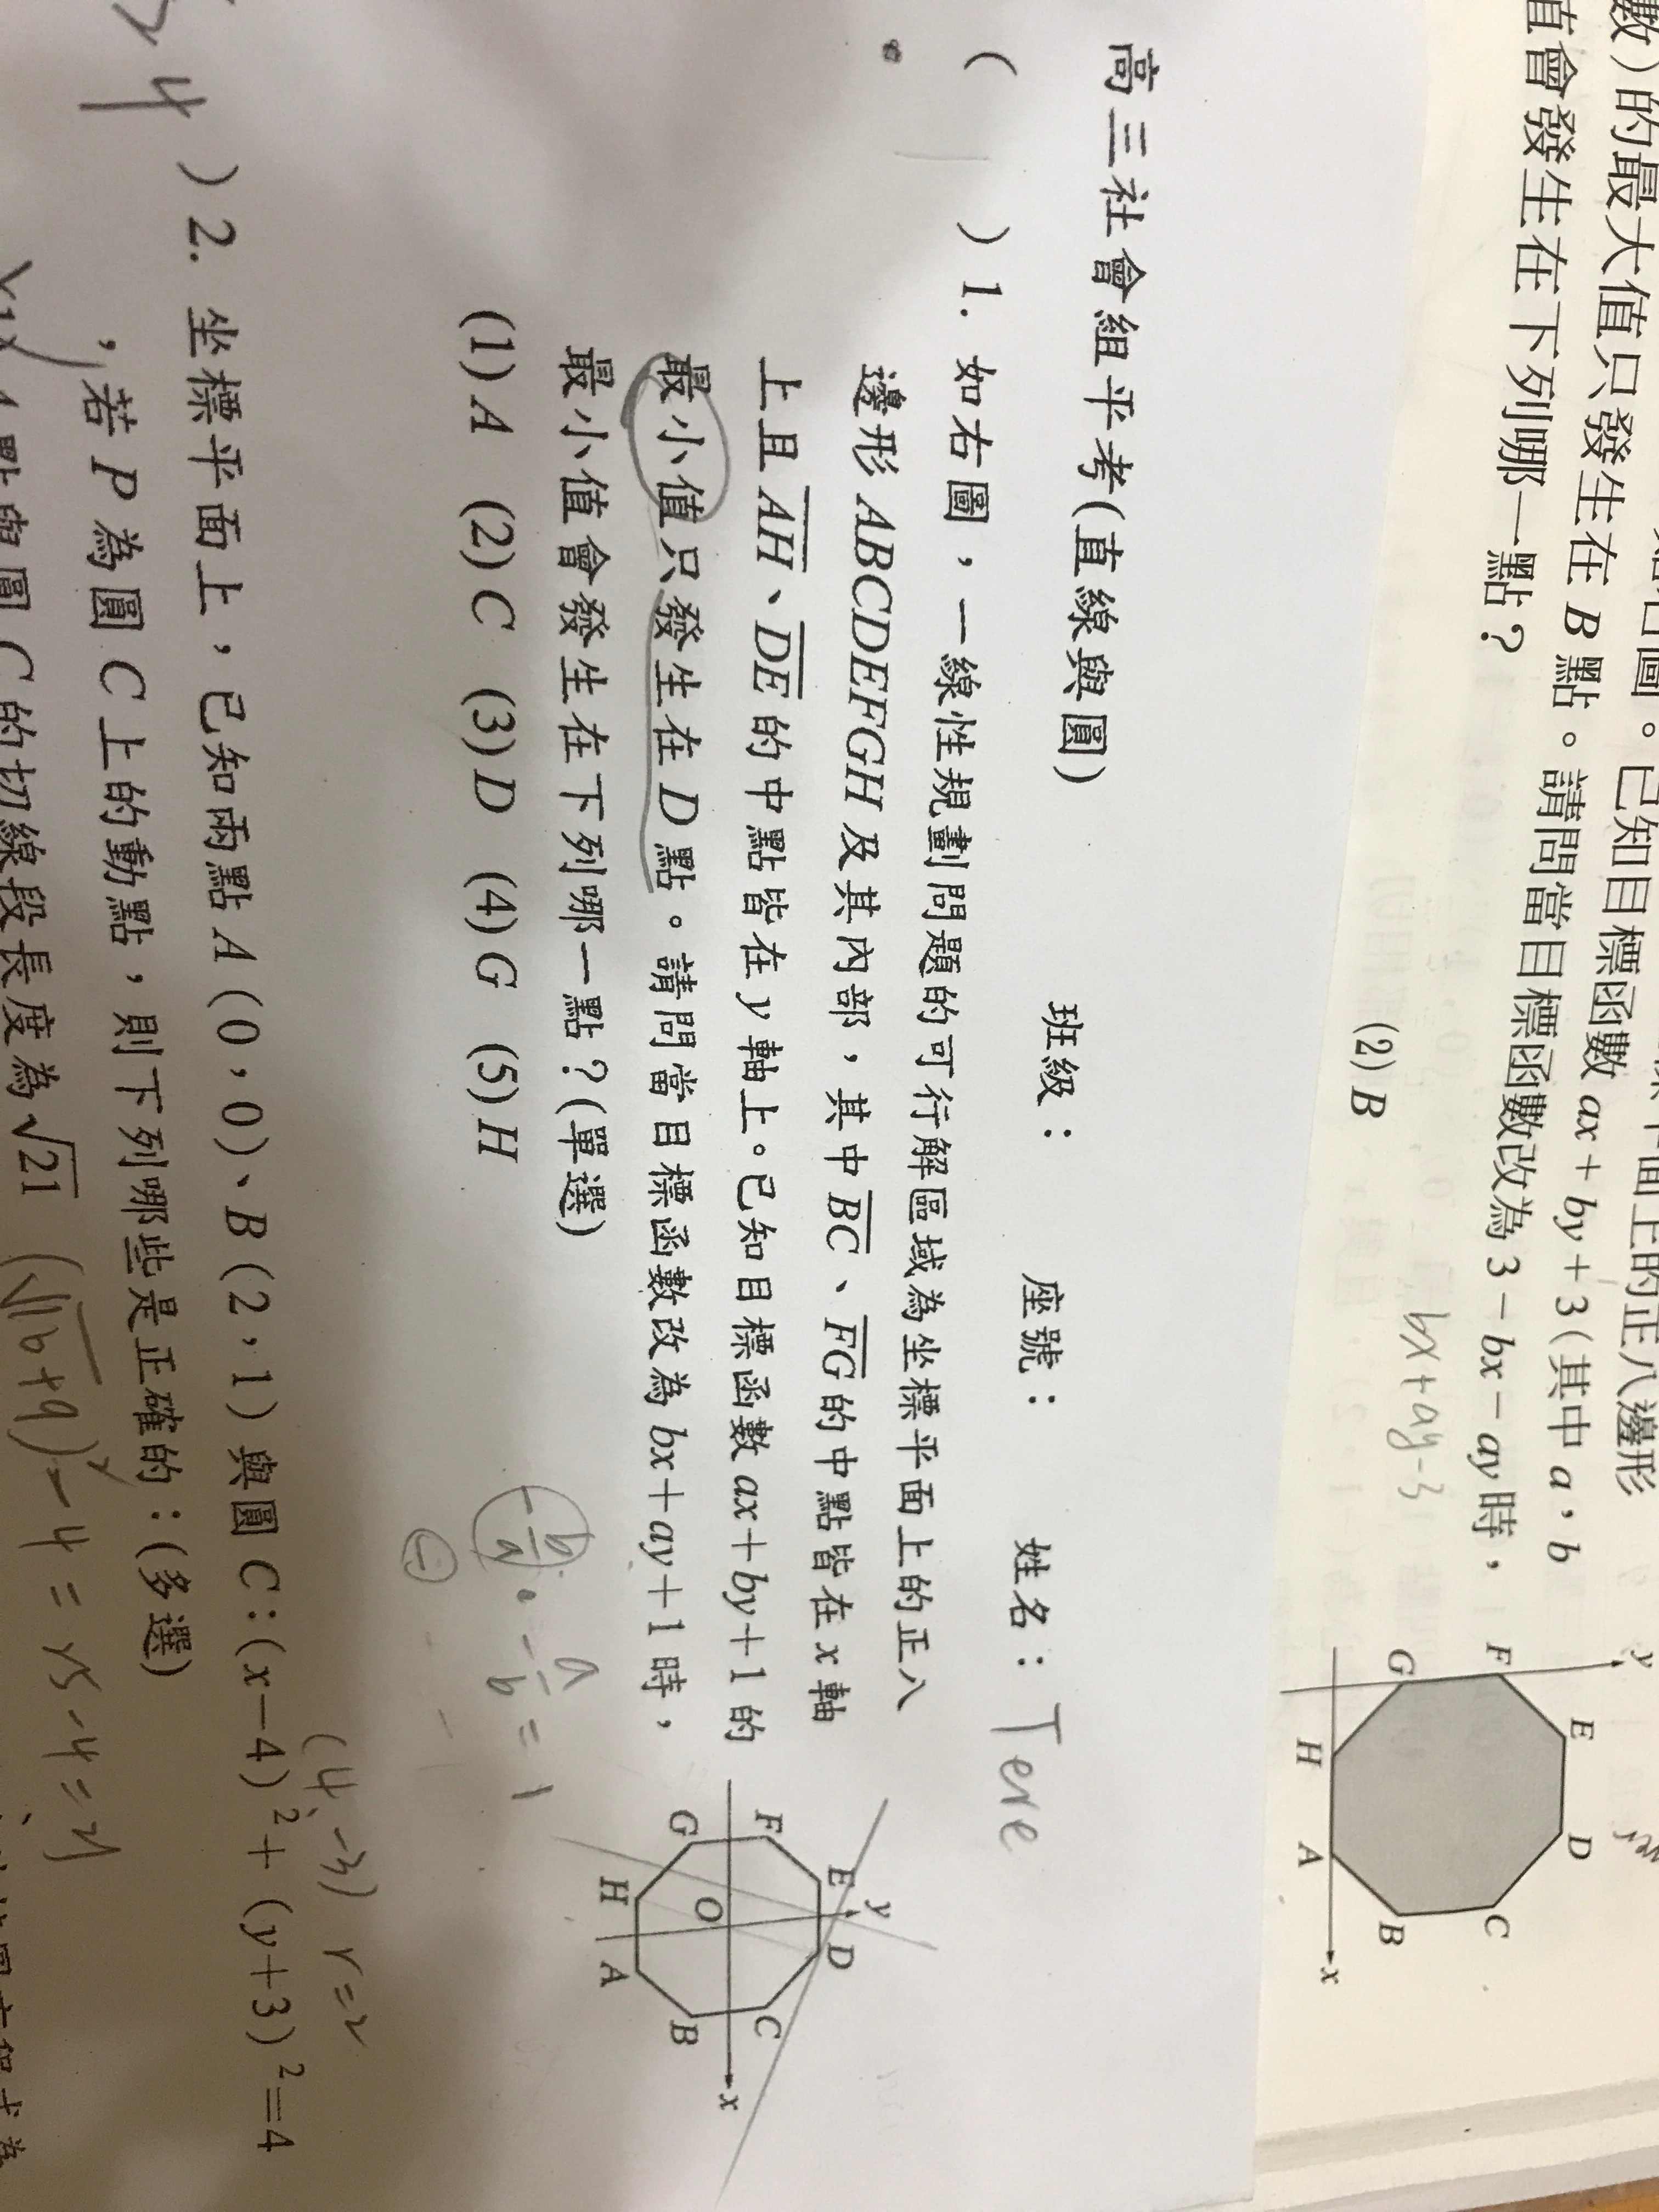 數)的最大值只發生在 B 點。請問當目標函數改為 3 − bx − ay 時,
直會發生在下列哪一點?
已知目標函數 ax + by + 3 (其中 a, b
面上的正八邊形
bx + ay - 3
(2) B
y
F
E
G
D
H
C
A
B
x
高三社會組平考(直線與圓) 班級: 座號: 姓名: Tere
( ) 1. 如右圖,一線性規劃問題的可行解區域為坐標平面上的正八
邊形 ABCDEFGH 及其內部,其中 \overline{BC}、\overline{FG} 的中點皆在 x 軸
上且 \overline{AH}、\overline{DE} 的中點皆在 y 軸上。已知目標函數 ax + by + 1 的
最小值只發生在 D 點。請問當目標函數改為 bx + ay + 1 時,
最小值會發生在下列哪一點?(單選)
(1) A (2) C (3) D (4) G (5) H
y
E
D
F
C
O
x
G
B
H
A
-\frac{b}{a} · -\frac{a}{b} = 1
(4, -3) r = 2
) 2. 坐標平面上,已知兩點 A (0, 0)、B (2, 1) 與圓 C : (x − 4)² + (y + 3)² = 4
,若 P 為圓 C 上的動點,則下列哪些是正確的:(多選)
點與圓 C 的切線段長度為 √21